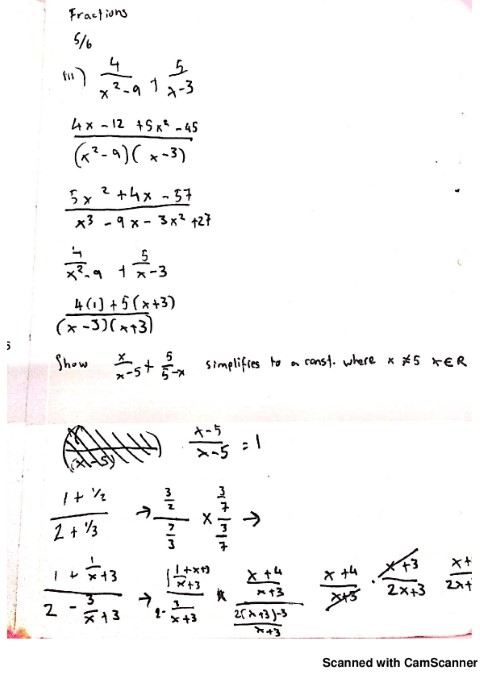 Fractions
5/6
(iii) 4/(x²-9) + 5/(x-3)
(4x - 12 + 5x² - 45)/((x²-9)(x-3))
(5x² + 4x - 57)/(x³ - 9x - 3x² + 27)
4/(x²-9) + 5/(x-3)
(4(1) + 5(x+3))/((x-3)(x+3))
Show x/(x-5) + 5/(5-x) simplifies to a const. where x ≠ 5 x ∈ R
(x-5)/(x-5) = 1
(1 + 1/2)/(2 + 1/3) → (3/2)/(7/3) × (3/7)/(3/7) →
(1 + 1/(x+3))/(2 - 3/(x+3)) → ((x+4)/(x+3))/((2(x+3)-3)/(x+3)) (x+4)/(x+3) · (x+3)/(2x+3)
Scanned with CamScanner